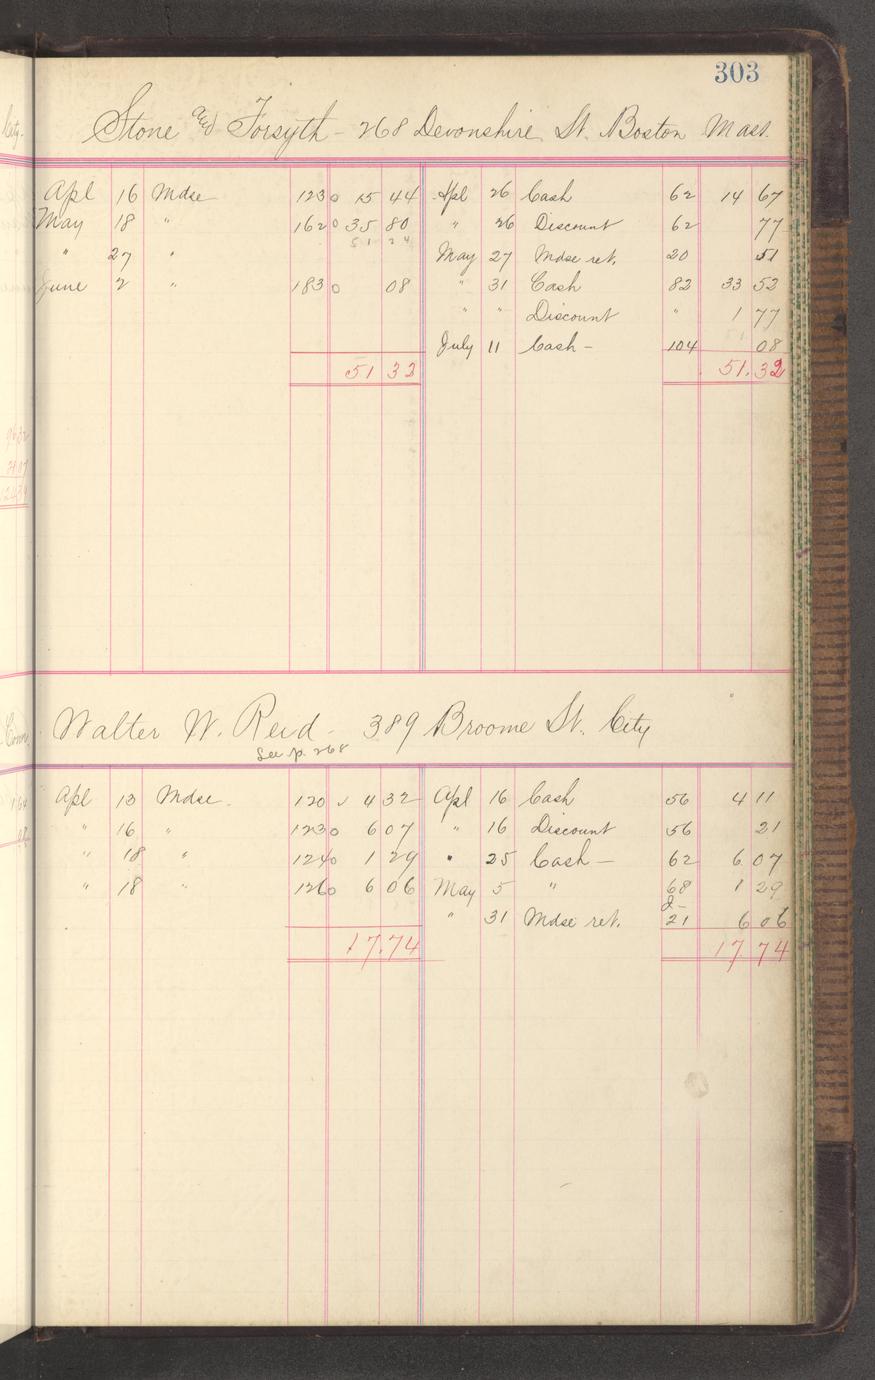 303
Stone and Forsyth - 268 Devonshire St. Boston Mass.
Apl 16 Mdse 123 0 15 44 Apl 26 Cash 62 14 67
May 18 " 162 0 35 80 " 26 Discount 62 77
51 24
" 27 " May 27 Mdse ret. 20 51
June 2 " 183 0 08 " 31 Cash 82 33 52
" " Discount " 1 77
July 11 Cash - 104 08
51 32 51.32
Walter W. Reid - 389 Broome St. City
See p. 268
Apl 13 Mdse. 120 ✓ 4 32 Apl 16 Cash 56 4 11
" 16 " 123 0 6 07 " 16 Discount 56 21
" 18 " 124 0 1 29 " 25 Cash - 62 6 07
" 18 " 126 0 6 06 May 5 " 68 1 29
" 31 Mdse ret. 21 6 06
17.74 17 74